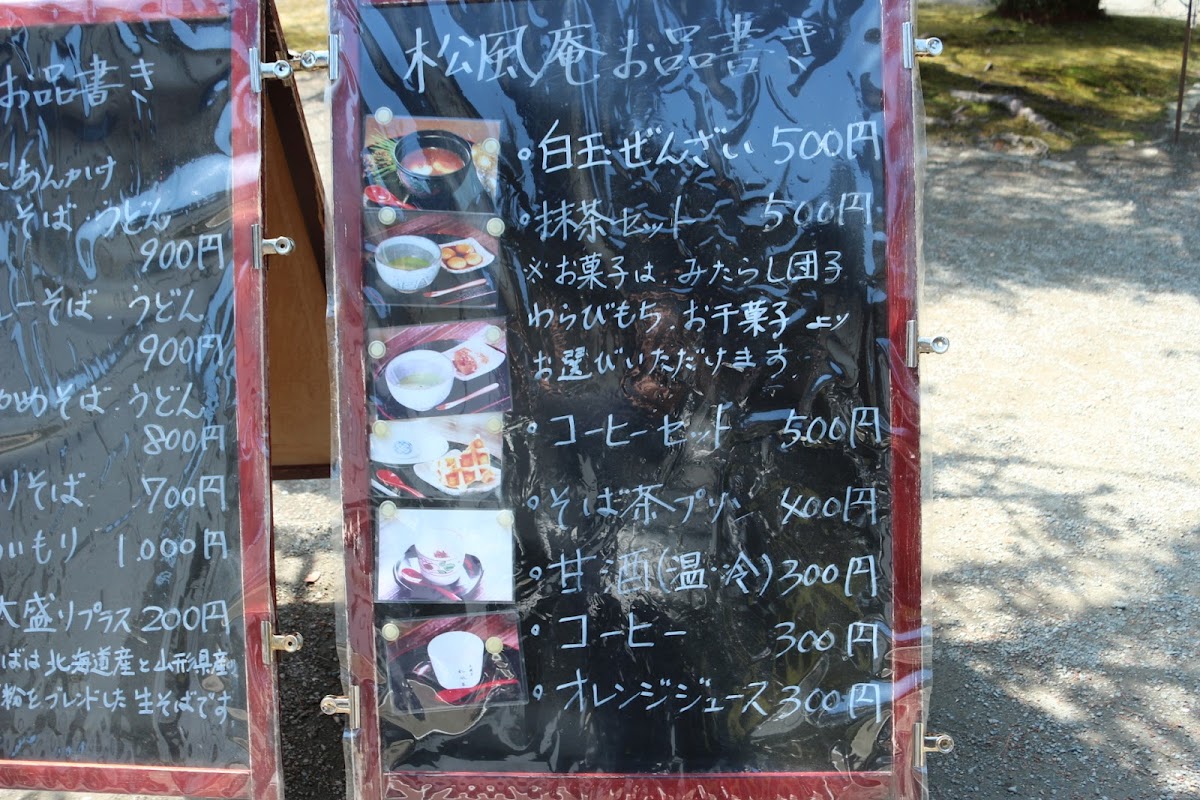 お品書き
あんかけ
そば・うどん
900円
ーそば・うどん
900円
めそば・うどん
800円
りそば 700円
いもり 1.000円
大盛りプラス 200円
ばは北海道産と山形県産
粉をブレンドした生そばです
松風庵お品書き
。白玉ぜんざい 500円
。抹茶セット 500円
※お菓子は、みたらし団子
わらびもち、お干菓子より
お選びいただけます
・コーヒーセット 500円
。そば茶プリン 400円
。甘酒(温・冷) 300円
・コーヒー 300円
。オレンジジュース 300円